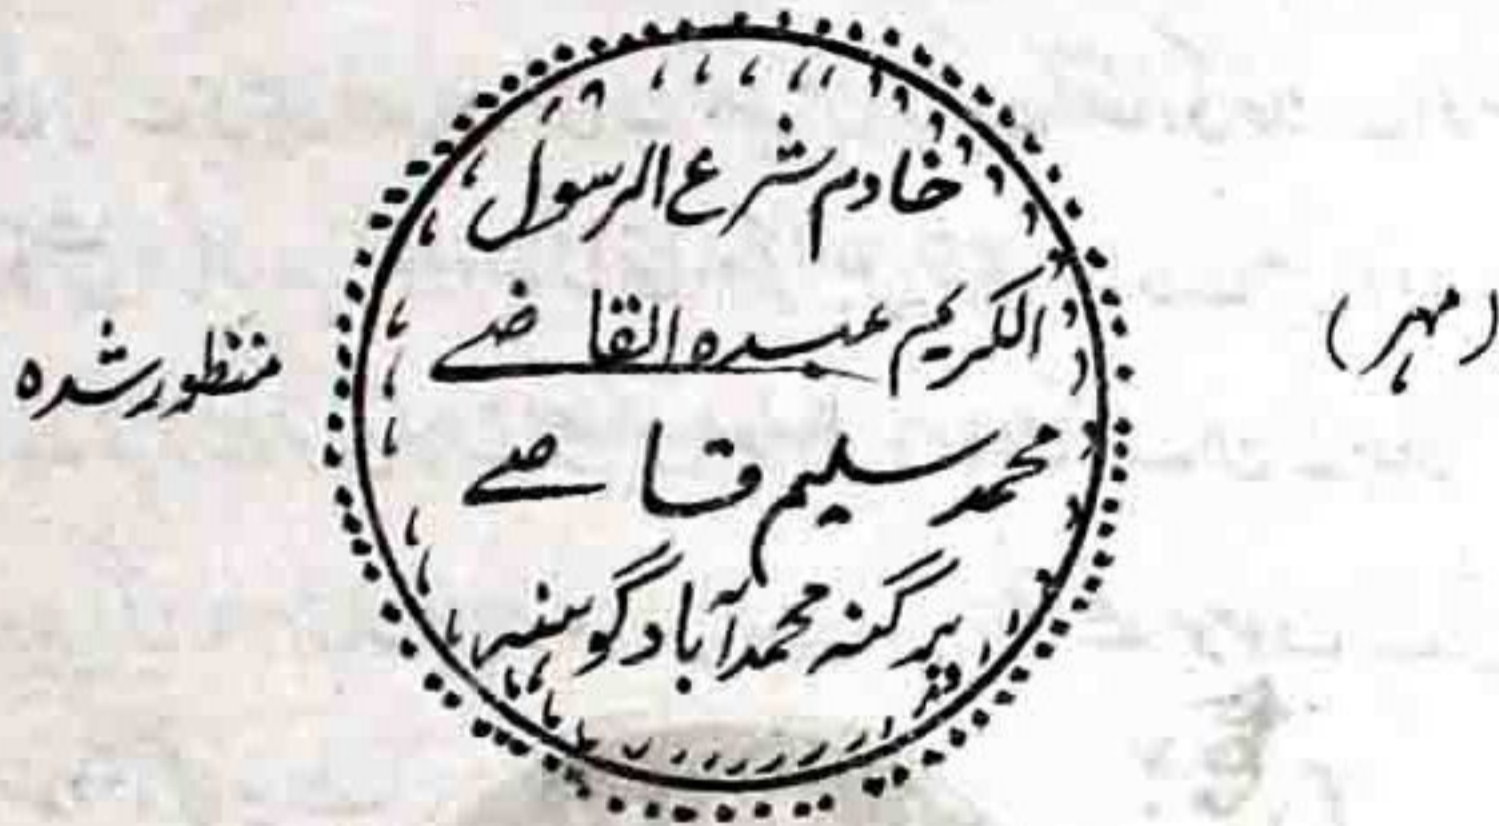 (مہر)
خادم شرع الرسول
الکریم عبده القاضے
محمد سلیم قاضے
پرگنہ محمدآباد گوہنہ
منظور شدہ